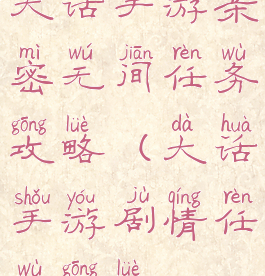 大话手游亲
mì wú jiān rèn wù
密无间任务
gōng lüè dà huà
攻略（大话
shǒu yóu jù qíng rèn
手游剧情任
wù gōng lüè